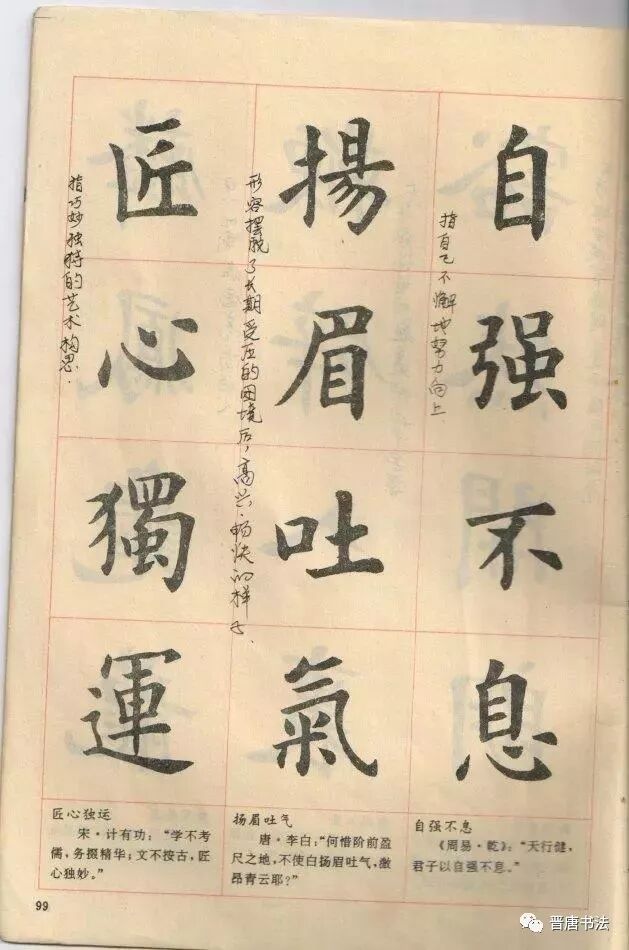 自强不息
指自己不懈地努力向上
揚眉吐氣
形容摆脱了长期受压的困境后，高兴·畅快的样子、
匠心獨運
指巧妙独特的艺术构思．
自强不息
《周易·乾》：“天行健，
君子以自强不息。”
扬眉吐气
唐·李白：“何惜阶前盈
尺之地，不使白扬眉吐气，激
昂青云耶？”
匠心独运
宋·计有功：“学不考
儒，务掇精华；文不按古，匠
心独妙。”
99
晋唐书法